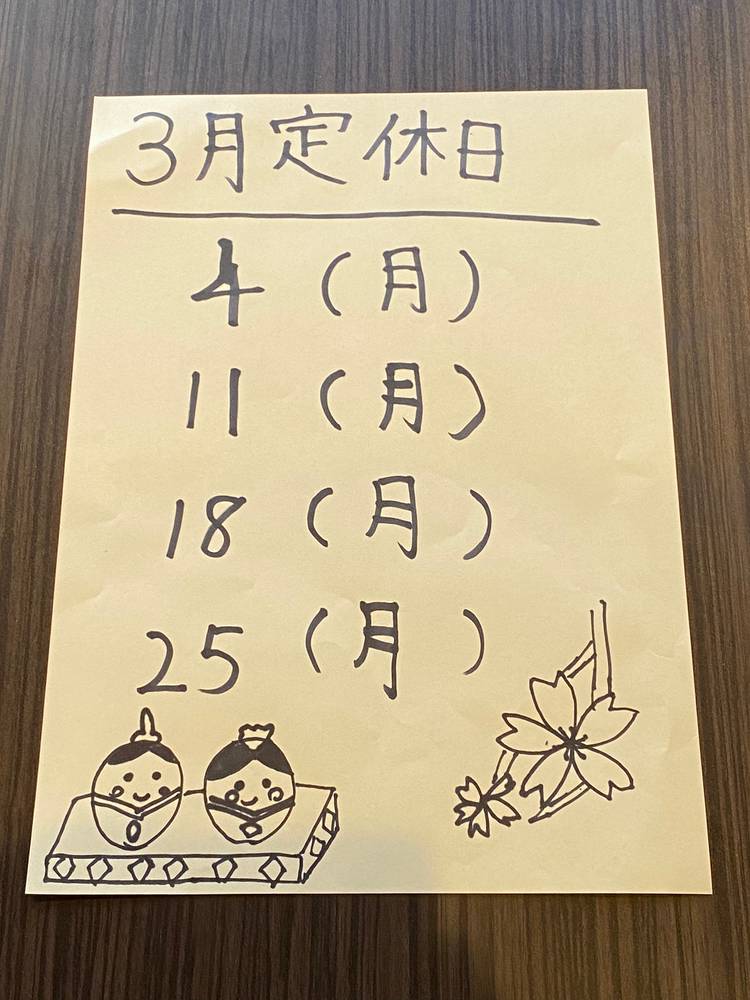 3月定休日
4（月）
11（月）
18（月）
25（月）